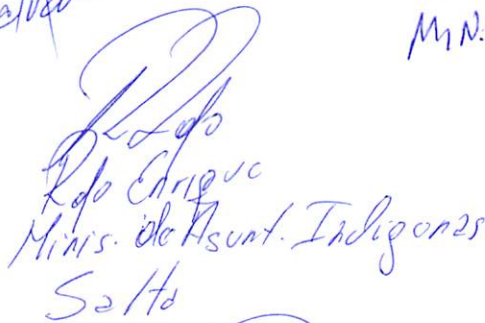 M, N.
Rojo Enrique
Minis. de Asunt. Indigenas
Salta